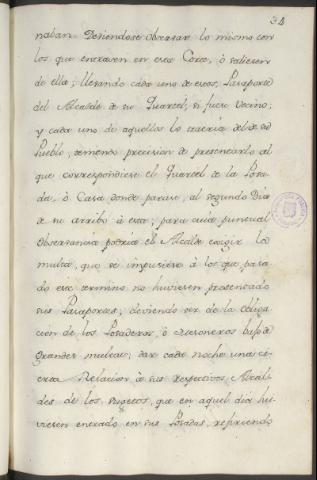 34
naban. Deviendose observar lo mismo con
los que entraren en esta Corte, ò salieren
de ella; llevando cada uno de estos, Pasaporte
del Alcalde de su Quartel, si fuere Vecino;
y cada uno de aquellos lo traeria del de su
Pueblo, teniendo precision de presentarlo al
que correspondiese el Quartel de la Posa-
da, ò Casa donde parase, al segundo Dia
de su arribo à esta; para cuia puntual
Observancia podria el Alcalde exigir la
multa, que se impusiere à los que pasa-
do este termino no huviesen presentado
sus Pasaportes; deviendo ser de la obliga-
cion de los Posaderos, ò Mesoneros bajo de
grandes multas, dar cada noche una
Relacion à sus respectivos Alcal-
des de los sugetos, que en aquel dia hu-
viesen entrado en sus Posadas, refiriendo